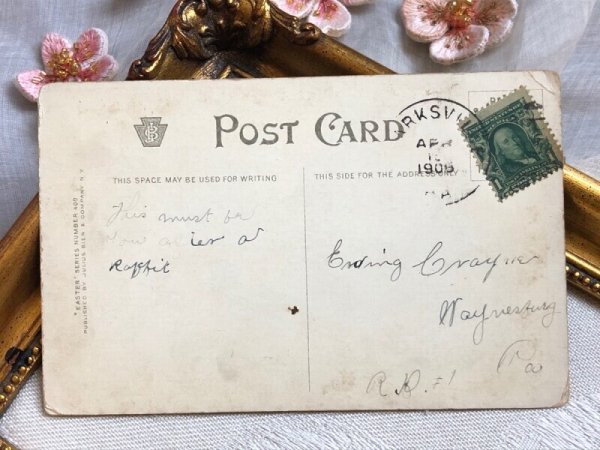 POST CARD
THIS SPACE MAY BE USED FOR WRITING
THIS SIDE FOR THE ADDRESS ONLY
"EASTER" SERIES NUMBER 400
PUBLISHED BY JULIUS BIEN & COMPANY N.Y.
JB
RKSVI
APR
1908
PA
This must be
How a
Rabbit
Ewing Crayne
Waynesburg
R.D. #1
Pa